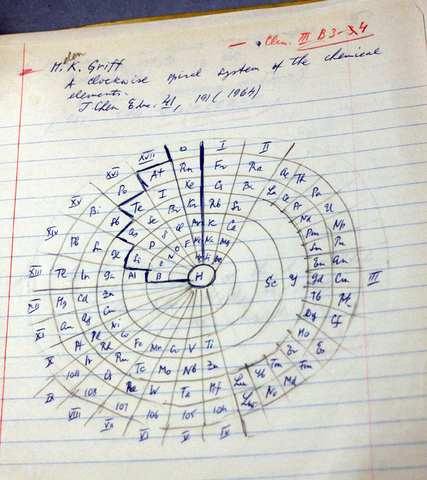 Chem. III B 3-4
Helen
M. K. Griff
A clockwise spiral system of the chemical
elements.
J Chem Educ. 41, 191 (1964)
XVII O I II
XVI At Rn Fr Ra Ac Th Pa U
XV Po I Xe Cs Ba La Ce Pr Nd
Bi Te Br Kr Rb Sr
XIV Sb Se Cl Ar K Ca
Pb Sn As S P Si
XIII Tl In Ga Al B H Sc Y
XII Hg Cd Zn
XI Au Ag Cu
X Pt Pd Ni
Ir Rh Co
IX 108 Os Ru Fe Mn Cr V Ti
VIII 107 Re Tc Mo Nb
VII 106 W Ta Hf
VI 105 104
V IV
Np Pm Pu Sm Am Eu
Gd Cm III
Tb Bk
Dy Cf
Ho Es
Er Fm
Tm Md
Yb No
Lu Lw